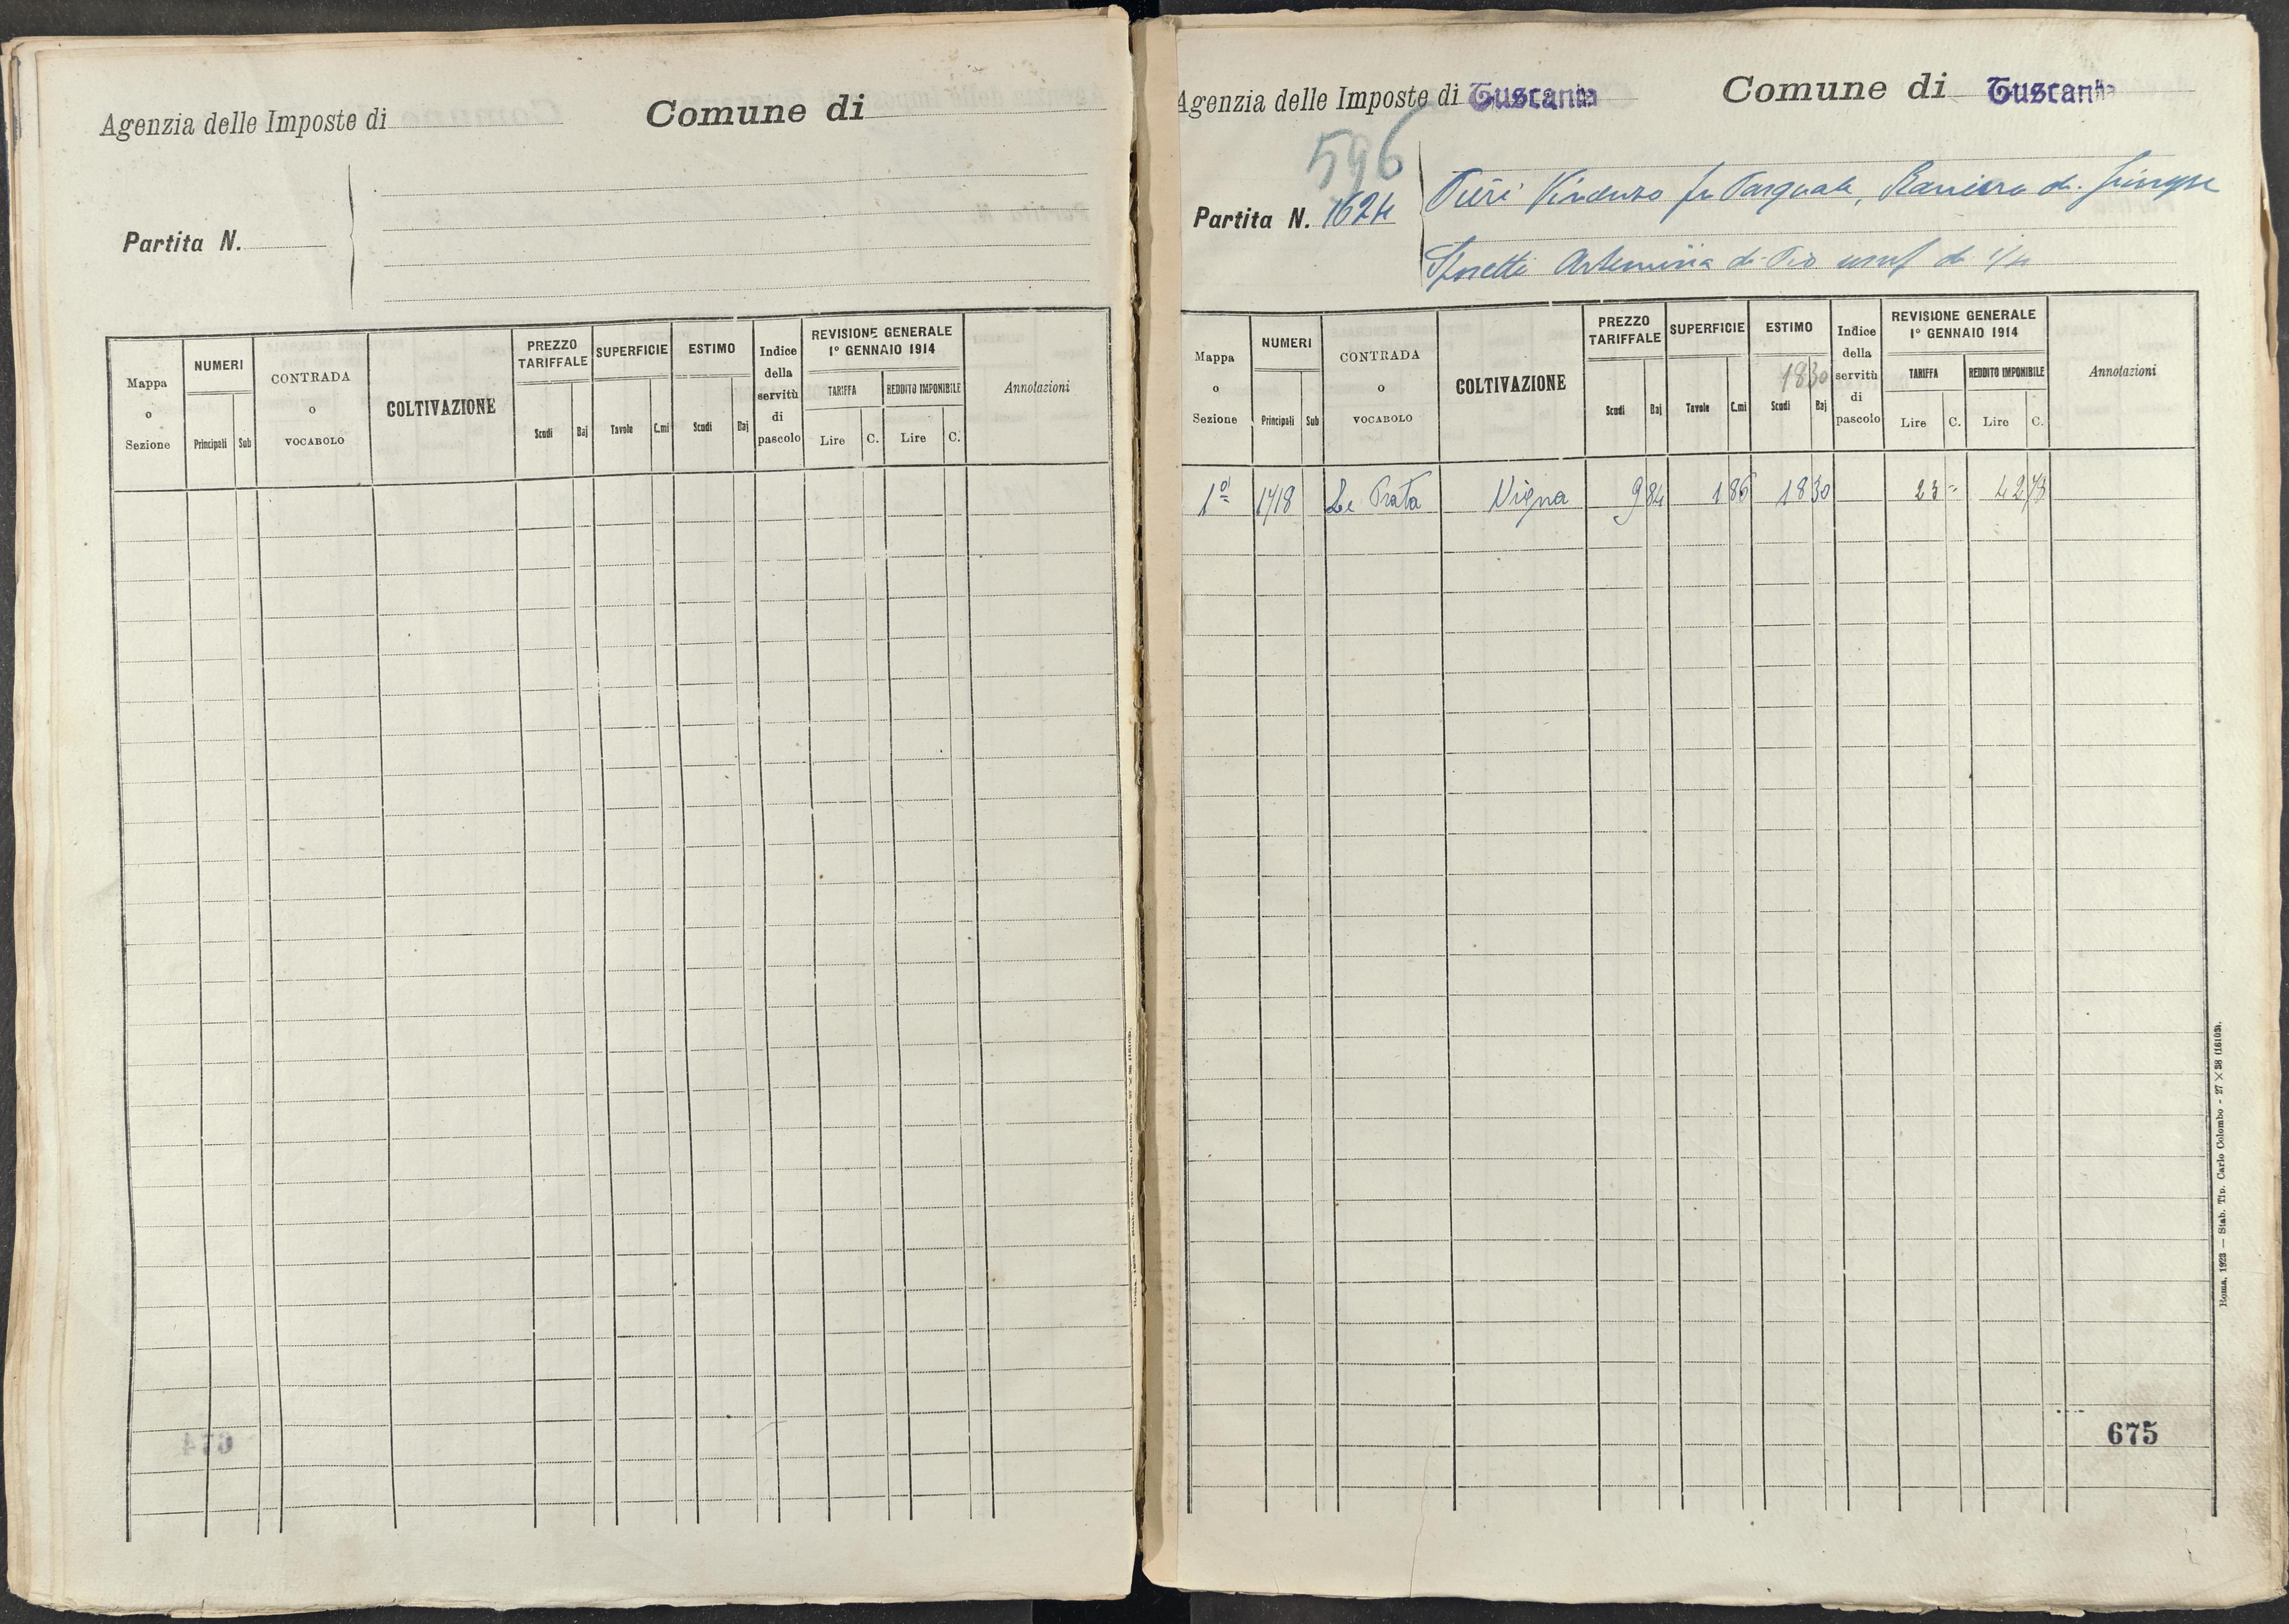 Agenzia delle Imposte di
Comune di
Partita N.
Mappa o Sezione
NUMERI
Principali Sub
CONTRADA o VOCABOLO
COLTIVAZIONE
PREZZO TARIFFALE
Scudi Baj
SUPERFICIE
Tavole C.mi
ESTIMO
Scudi Baj
Indice della servitù di pascolo
REVISIONE GENERALE
1° GENNAIO 1914
TARIFFA
Lire C.
REDDITO IMPONIBILE
Lire C.
Annotazioni
674
Agenzia delle Imposte di Tuscania
Comune di Tuscania
596
Partita N. 1624
Pieri Vincenzo fu Pasquale, Raniero di Giuseppe
Artemisia di Pio usuf di 1/4
Mappa o Sezione
NUMERI
Principali Sub
CONTRADA o VOCABOLO
COLTIVAZIONE
PREZZO TARIFFALE
Scudi Baj
SUPERFICIE
Tavole C.mi
ESTIMO
1830
Scudi Baj
Indice della servitù di pascolo
REVISIONE GENERALE
1° GENNAIO 1914
TARIFFA
Lire C.
REDDITO IMPONIBILE
Lire C.
Annotazioni
1ª 1718 Le Prata Vigna 9 84 1 86 18 30 23 = 42 78
Roma, 1923 — Stab. Tip. Carlo Colombo - 27 × 38 (16103).
675